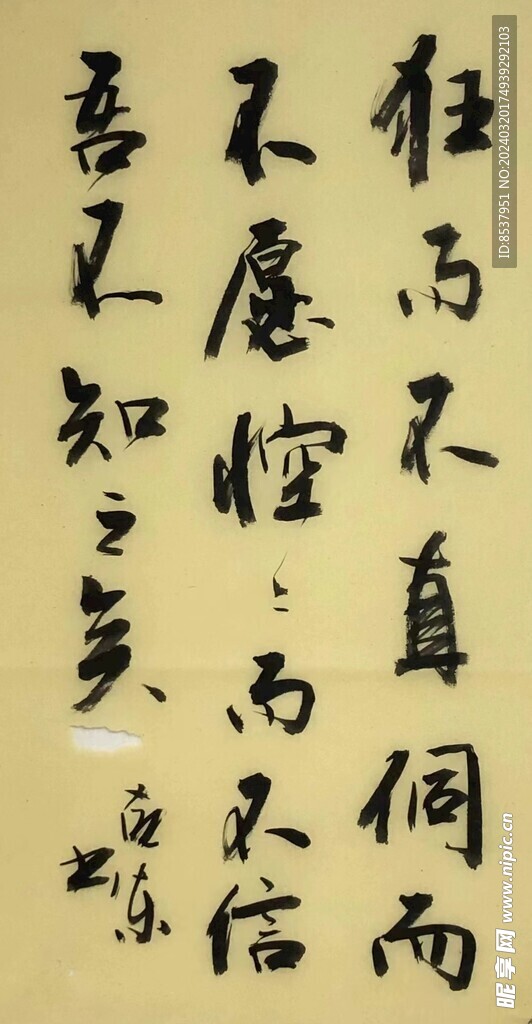 狂而不直侗而
不愿悾々而不信
吾不知之矣
书
ID:8537951 NO:20240320174939292103
昵享网 www.nipic.cn